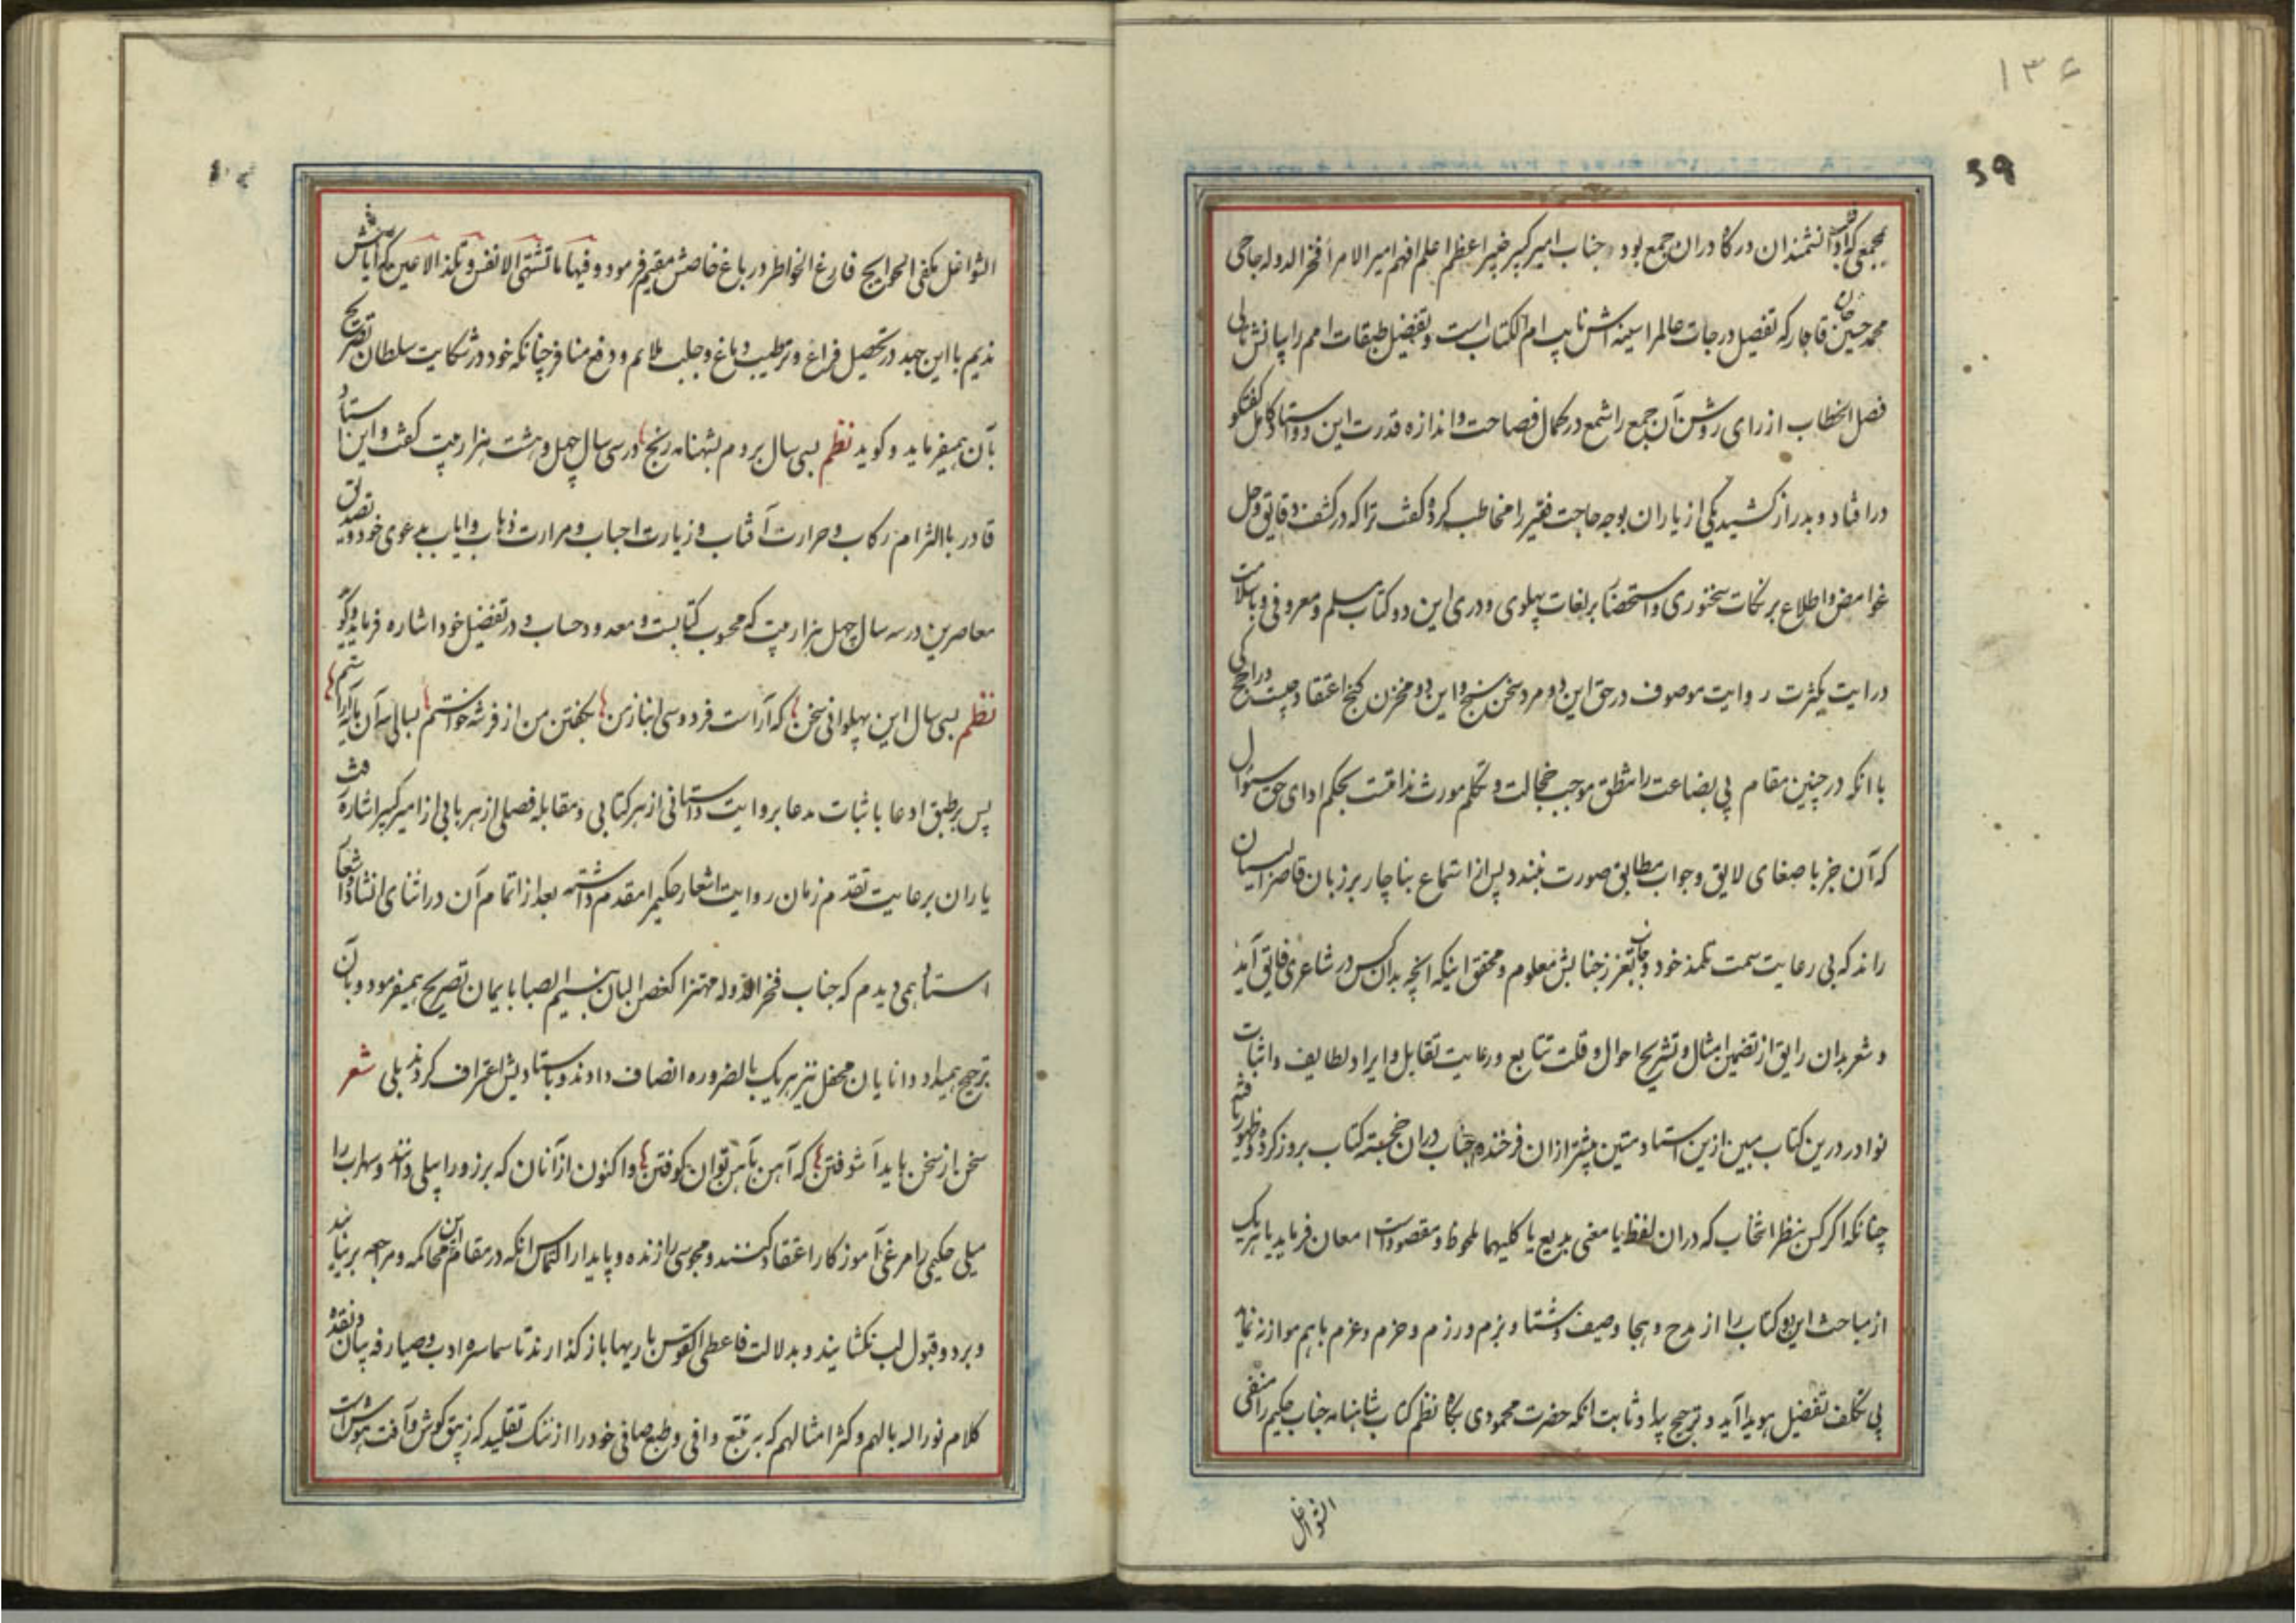 ۱۳۶
39
بمجمعی که دانشمندان در کار دران جمع بود جناب امیر کبیر خبیر اعظم اعلم افهم امیر الامرا فخر الدوله حاجی
محمد حسین خان قاجار که تفصیل درجات عالم را سینه اش نایب ام الکتاب است و تفضیل طبقات امم را بیانش تالی
فصل الخطاب از رای روشن آن جمع را شمع در کمال فصاحت و اندازه قدرت این دو استاد کامل گفتگو
در افتاد و بدراز کشید یکی از یاران بوجه حاجت فقیر را مخاطب کرد و گفت ترا که در کشف دقایق و حل
غوامض و اطلاع بر نکات سخنوری و استحضار بر لغات پهلوی و دری این دو کتاب مسلم و معروفی و باسلامت
درایت بکثرت روایت موصوف در حق این دو مرد سخن سنج و این دو مخزن گنج اعتقاد چیست و راجح کی
با انکه در چنین مقام بی بضاعت را منطق موجب خجالت و تکلم مورث ندامتست بحکم ادای حق سئوال
که آن جز باصغای لایق و جواب مطابق صورت نبندد پس از استماع بناچار بر زبان قاصر البیان
راند که بی رعایت سمت تلمذ خود و جانب تعزز جنابش معلوم و محقق اینکه انچه بدان کس در شاعری فایق آید
و شعر بدان رایق از تضمین امثال و تشریح احوال و قلت تتابع و رعایت تقابل و ایراد لطایف و اثبات
نوادر درین کتاب مبین ازین استاد متین بیشتر ازان فرخنده جناب دران خجسته کتاب بروز کرده و ظهور یافته
چنانکه اگر کس بنظر انتخاب که دران لفظ یا معنی بدیع یا کلیهما ملحوظ و مقصود است امعان فرماید یا هر یک
از مباحث این دو کتاب را از مدح و هجا و صیف و شتا و بزم و رزم و حزم و عزم باهم موازنه نماید
بی تکلف تفضیل هویدا آید و ترجیح پیدا و ثابت انکه حضرت محمودی بگاه نظم کتاب شاهنامه جناب حکیم را منقی
الشواغل
الشواغل مکفی الحوایج فارغ الخواطر در باغ خاصش مقیم فرمود و فیها ما تشتهی الانفس و تلذ الاعین که آیاتش
ندیم با این جهد در تحصیل فراغ و ترطیب دماغ و جلب ملایم و دفع منافر چنانکه خود در شکایت سلطان تصریح
بآن همیفرماید و گوید نظم بسی سال بردم بشهنامه رنج و در سی سال چهل و هشت هزار بیت گفت و این استاد
قادر با التزام رکاب و حرارت آفتاب و زیارت احباب و مرارت ذهاب و ایاب بدعوی خود و تصدیق
معاصرین در سه سال چهل هزار بیت که محبوب کتابست و معدود حساب و در تفضیل خود اشاره فرماید و گوید
نظم بسی سال این پهلوانی سخن که آراست فردوسی انباز من بگفتن من از فرشه خواستم بسالی سه آن پایه آراستم
پس بر طبق ادعا باثبات مدعا بروایت داستانی از هر کتابی و مقابله فصلی از هر بابی از امیر کبیر اشاره رفت
یاران برعایت تقدم زمان روایت اشعار حکیم را مقدم داشته بعد از اتمام آن در اثنای انشاد اشعار
استاد همی دیدم که جناب فخر الدوله مهتزا کغصن البان بنسیم الصبا بایمان تصریح همیفرمود و بآن
ترجیح همیداد و دانایان محفل نیز هر یک بالضروره انصاف دادند و باستادیش اعتراف کردند بلی شعر
سخن از سخن باید آشوفتن که آهن بآهن توان کوفتن و اکنون از آنان که برزو را پیلی دانند و سهراب را
میلی حکیمی را مرغی آموزگار اعتقاد کنند و مجوسی را زنده و پایدار التماس انکه در مقام این محاکمه و مراجعه برنیایند
و برد و قبول لب نگشایند و بدلالت فاعطی القوس باریها بازگذارند تا سماسره ادب و صیارفه بیان و نقده
کلام نور اله بالهم و کثر امثالهم که به تتبع وافی و طبع صافی خود را از ننگ تقلید که زیبق گوش و آفت هوش است